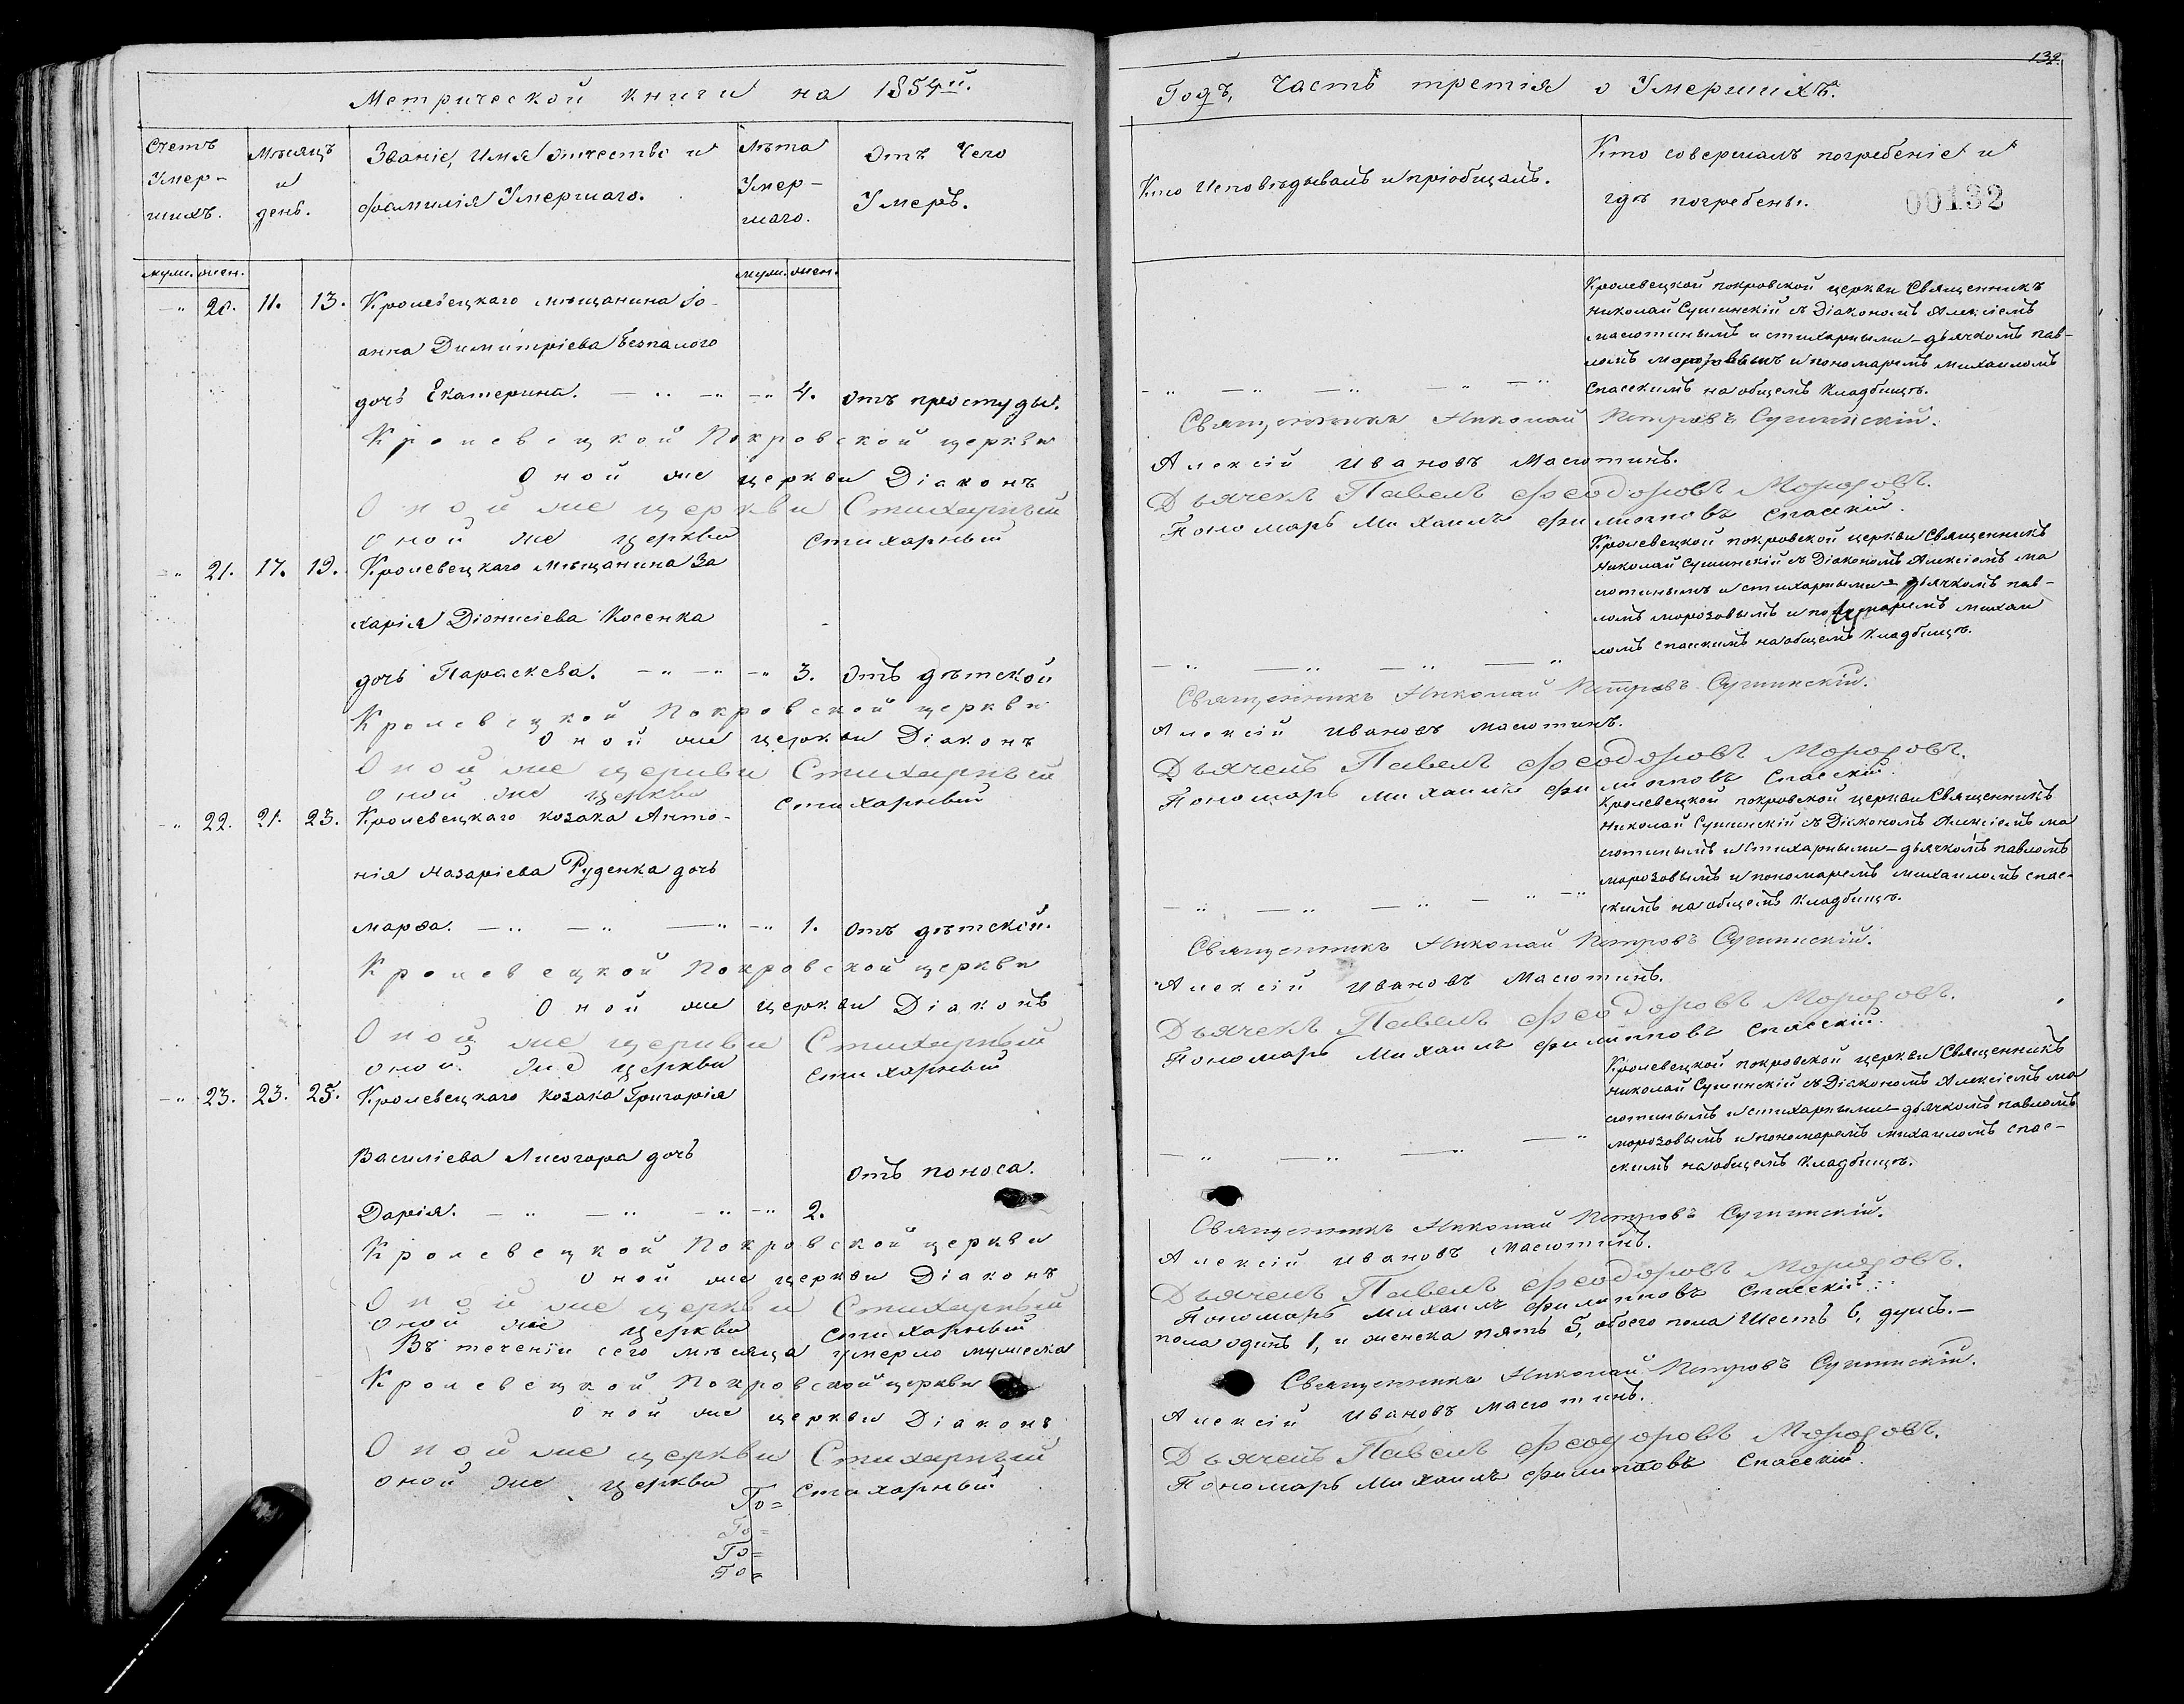 Метрической книги на 1854й.
Счетъ Умер-шихъ.
Мѣсяцъ и день.
Званіе, Имя отчество и
фамилія Умершаго.
Лѣта Умер-шаго.
Отъ Чего
Умеръ.
муж. жен.
муж. жен.
-" 20. 11. 13. Кролевецкаго мѣщанина Іо-
анна Димитріева Безпалого
дочь Екатерина. — " -" -" 4. отъ простуды.
Кролевецкой Покровской церкви
Оной же церкви Діаконъ
Оной же церкви Стихарный
оной же церкви стихарный
-" 21. 17. 19. Кролевецкаго мѣщанина За
харія Діонисіева Косенка
дочь Параскева. -" -" -" 3. отъ дѣтской
Кролевецкой Покровской церкви
Оной же церкви Діаконъ
Оной же церкви Стихарный
оной же церкви стихарный
-" 22. 21. 23. Кролевецкаго козака Анто-
нія Назаріева Руденка дочь
марѳа. -" -" -" -" 1. отъ дѣтскій.
Кролевецкой Покровской церкви
Оной же церкви Діаконъ
Оной же церкви Стихарный
оной же церкви стихарный
-" 23. 23. 25. Кролевецкаго козака Григорія
Василіева Лисогора дочь
отъ поноса.
Дарія. -" -" -" -" 2.
Кролевецкой Покровской церкви
Оной же церкви Діаконъ
Оной же церкви Стихарный
оной же церкви стихарный
Въ теченіи сего мѣсяца умерло мужеска
Кролевецкой Покровской церкви
Оной же церкви Діаконъ
Оной же церкви Стихарный
оной же церкви стихарный
То=
То=
То=
То=
132.
Годъ, Часть третія о Умершихъ.
Кто Исповѣдывалъ и пріобщалъ.
Кто совершалъ погребеніе и
гдѣ погребены.
00132
Кролевецкой покровской церкви Священникъ
николай Сушинскій съ Діакономъ Алексіемъ
масютинымъ и стихарными-дьячкомъ пав-
ломъ морозовымъ и пономаремъ михаиломъ
-" -" -" -" -" Спасскимъ на общемъ кладбищѣ.
Священникъ Николай Петровъ Сушинскій.
Алексій Ивановъ Масютинъ.
Дьячекъ Павелъ Феодоровъ Морозовъ.
Пономарь Михаилъ Филипповъ Спасскій.
Кролевецкой покровской церкви Священникъ
николай Сушинскій съ Діакономъ Алексіемъ ма
сютинымъ и стихарными-дьячкомъ пав-
ломъ морозовымъ и пономаремъ михаи
-" -" -" -" ломъ спасскимъ на общемъ кладбищѣ.
Священникъ Николай Петровъ Сушинскій.
Алексій Ивановъ масютинъ.
Дьячекъ Павелъ Феодоровъ Морозовъ.
Пономарь Михаилъ Филипповъ Спасскій.
Кролевецкой покровской церкви Священникъ
николай Сушинскій съ Діакономъ Алексіемъ ма
сютинымъ и Стихарными-дьячкомъ павломъ
морозовымъ и пономаремъ михаиломъ спас-
-" -" -" -" -" скимъ на общемъ кладбищѣ.
Священникъ Николай Петровъ Сушинскій.
Алексій Ивановъ Масютинъ.
Дьячекъ Павелъ Феодоровъ Морозовъ.
Пономарь Михаилъ Филипповъ Спасскій.
Кролевецкой покровской церкви Священникъ
николай Сушинскій съ Діакономъ Алексіемъ ма
сютинымъ и стихарными-дьячкомъ павломъ
морозовымъ и пономаремъ михаиломъ спас-
-" -" -" -" скимъ на общемъ кладбищѣ.
Священникъ Николай Петровъ Сушинскій.
Алексій Ивановъ Масютинъ.
Дьячекъ Павелъ Феодоровъ Морозовъ.
Пономарь Михаилъ Филипповъ Спасскій.
пола одинъ 1, и женска пять 5, обоего пола Шесть 6, душъ.-
Священникъ Николай Петровъ Сушинскій.
Алексій Ивановъ масютинъ.
Дьячекъ Павелъ Феодоровъ Морозовъ.
Пономарь Михаилъ Филипповъ Спасскій.